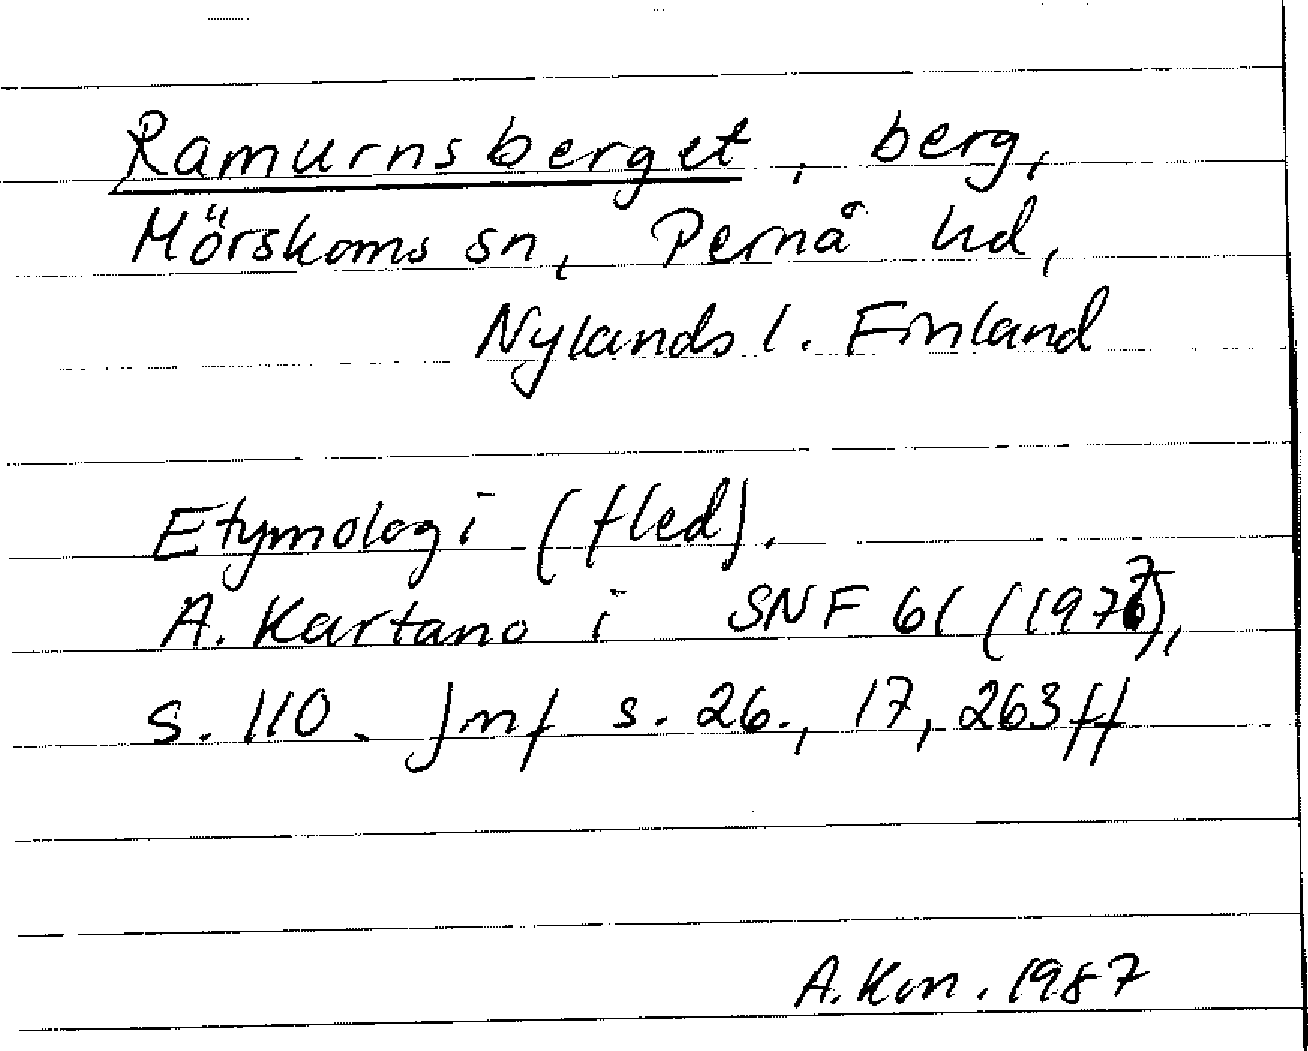 Ramurnsberget, berg,
Mörskoms sn, Pernå hd,
Nylands l. Finland
Etymologi (fled).
A. Kartano i SNF 61 (1977),
s. 110. Jmf s. 26., 17, 263ff
A. Kon. 1987